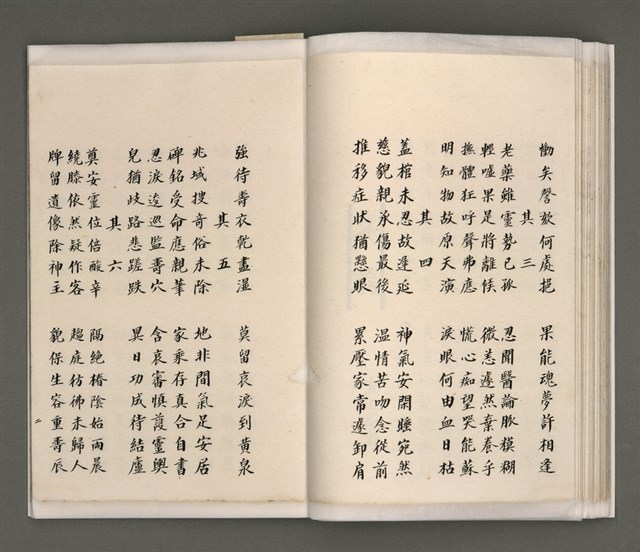 慟矣謦欬何處挹　果能魂夢許相逢
其三
老藥雖靈勢已孤　忍聞醫論脈模糊
輕噓果是將離候　微恙遽然棄養乎
撫體狂呼聲弗應　慌心痴望哭能蘇
明知物故原天演　淚眼何由血日枯
其四
蓋棺未忍故遲延　神氣安閑睡宛然
慈貌親承傷最後　溫情苦吻念從前
推移症狀猶懸眼　累壓家常遽卸肩
強待壽衣乾盡濕　莫留哀淚到黄泉
其五
兆域搜奇俗未除　地非間氣足安居
碑銘受命應親筆　家乘存真合自書
忍淚逡巡監壽穴　含哀審慎護靈輿
兒猶歧路悲蹉跌　異日功成待結廬
其六
奠安靈位倍酸辛　隔絶椿陰始兩晨
繞膝依然疑作客　趨庭彷彿未歸人
牌留遺像除神主　貌保生容重壽辰
二